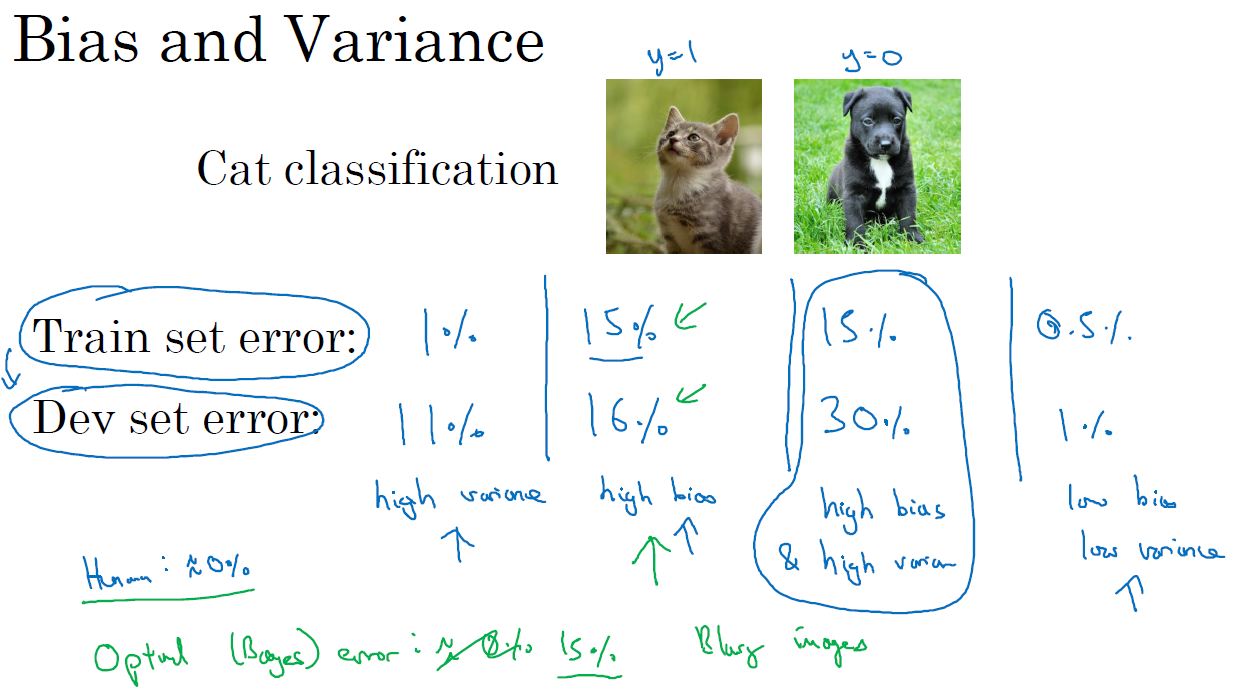 Bias and Variance
y=1 y=0
Cat classification
Train set error: 1% 15% 15% 0.5%
Dev set error: 11% 16% 30% 1%
high variance high bias high bias & high varian low bias low variance
Human: ≈0%
Optiml (Bayes) error: ≈ 0% 15% Blurry images